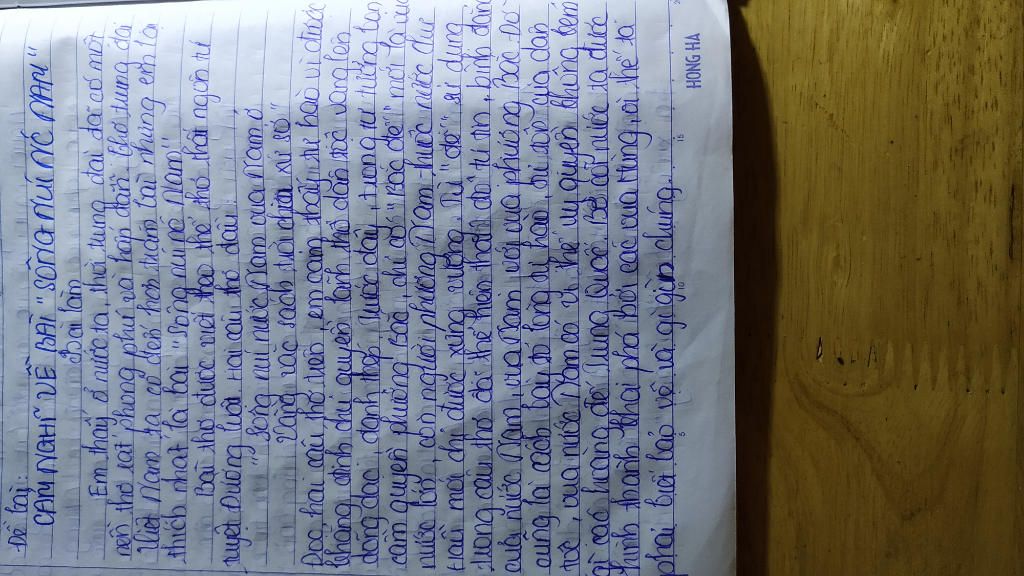 Đề bài:
CẢM NGHĨ VỀ BÀI "SÔNG NÚI NƯỚC NAM"
Bài làm
Em thấy ở nước ta, thời trung đại đã có một
nền thơ rất phong phú và hấp dẫn. Thơ trung đại
Việt Nam ta có đến hơn tuần bài nhưng em lại
thích nhất là bài "Sông núi nước Nam".
Bài thơ được viết theo thể thơ thất ngôn tứ
tuyệt Đường luật. Hai câu thơ đầu:
"Sông núi nước Nam vua Nam ở
Vằng vặc sách trời chia xứ sở"
Đọc hai câu thơ lên em cảm thấy tự hào vì được
khẳng định chủ quyền lãnh thổ dân tộc vang lên
dõng dạc, đanh thép. Trước đây, trong tư tưởng của
cầm quyền phương Bắc, chỉ có "Bắc đế" mới là vua
nước lớn, còn người phương Nam thuộc nước chư
hầu mới chỉ được xưng vương. Từ "đế" sử dụng
trong câu thơ đã thể hiện thái độ tự tin, bình đẳng
của nước Nam, vua Nam với vua phương Bắc. Đó
cũng là cách bày tỏ lòng tự hào, tự tôn của dân
tộc, vua nước Nam có vị thế, uy quyền không kém
gì các hoàng đế Trung Quốc. Bờ cõi nước ta được
hình thành, khai phá bởi các vua Hùng, rồi thế ta
phải biết bảo vệ và gìn giữ chúng.
HONG HA
5
10
15
20